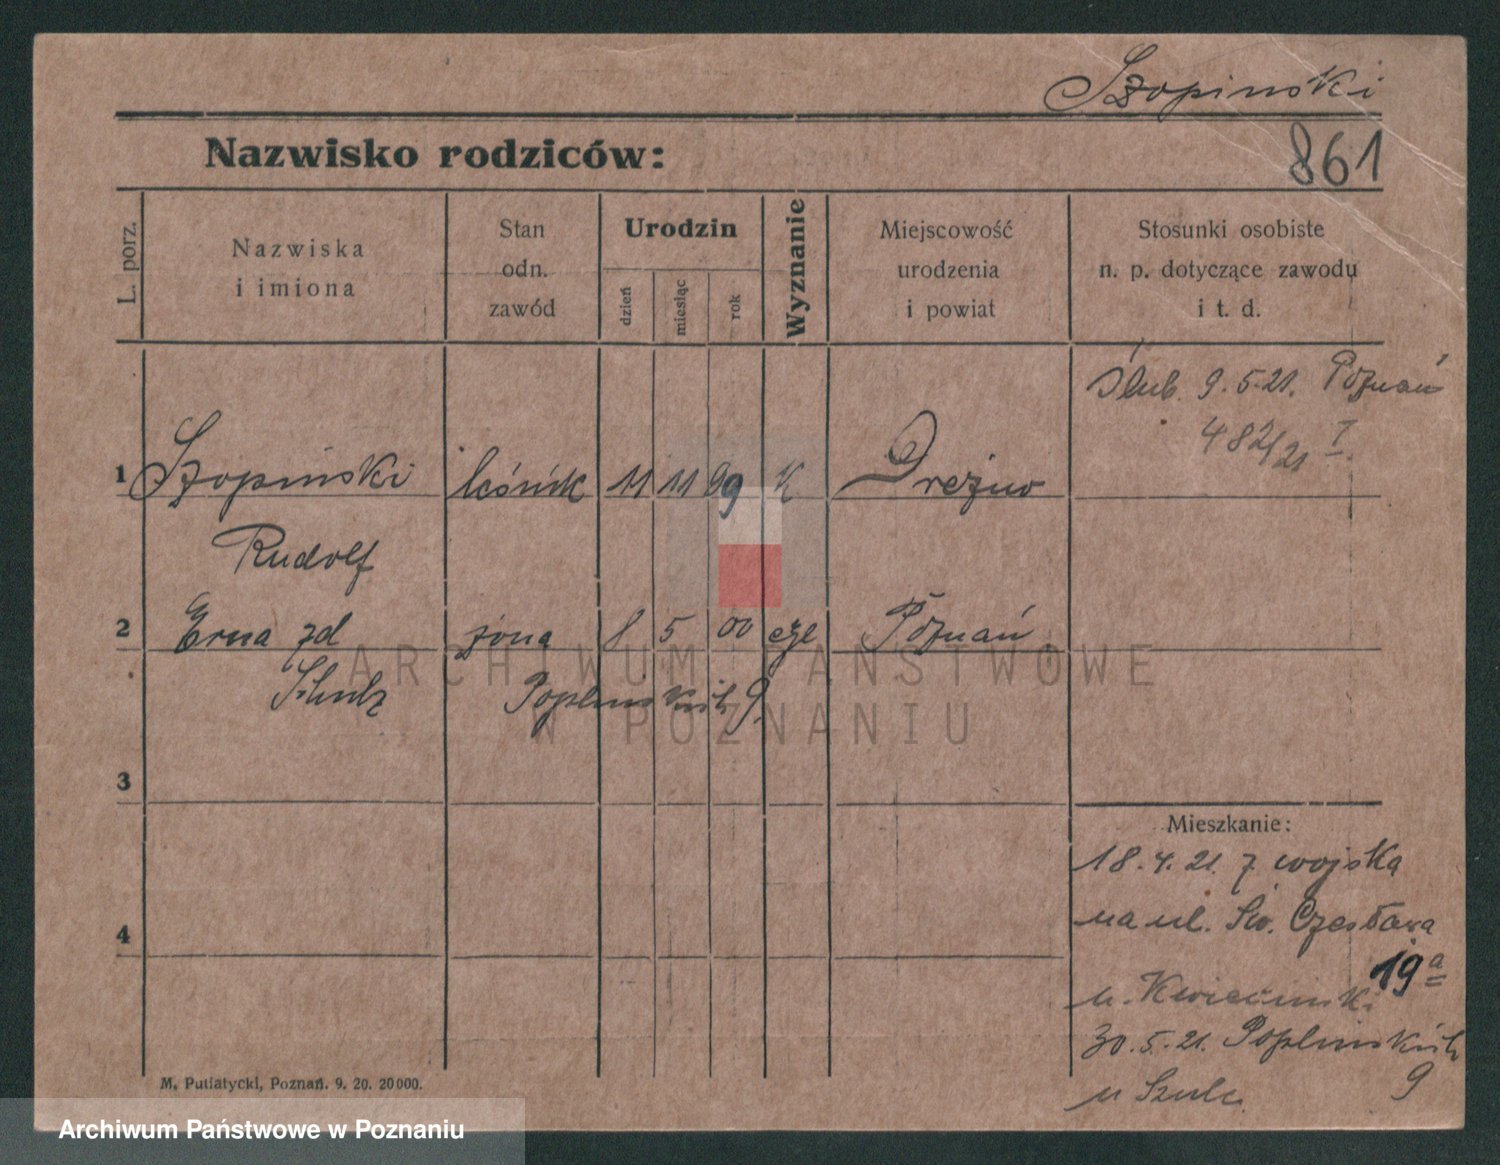 Szopinski
Nazwisko rodziców:
861
L. porz.
Nazwiska
i imiona
Stan
odn.
zawód
Urodzin
dzień
miesiąc
rok
Wyznanie
Miejscowość
urodzenia
i powiat
Stosunki osobiste
n. p. dotyczące zawodu
i t. d.
Ślub. 9.5.21. Poznań
482/21 I.
1 Szopiński leśnik 11 11 99 K
Rudolf
2 Erna zd żona 8 5 00 Poznań
Schulz Poplińskich 9.
3
4
Mieszkanie:
18.4.21. z wojska
na ul. Św. Czesława
19a
u.
30.5.21. Poplińskich
9
u Szulc.
M. Putiatycki, Poznań. 9. 20. 20000.
ARCHIWUM PAŃSTWOWE
W POZNANIU
Archiwum Państwowe w Poznaniu